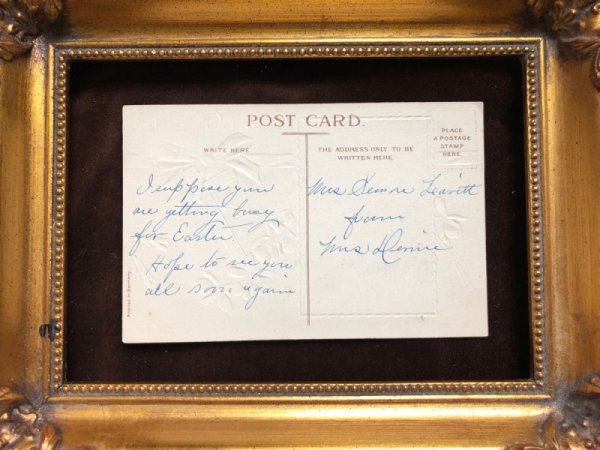 POST CARD.
WRITE HERE
THE ADDRESS ONLY TO BE
WRITTEN HERE.
PLACE
A POSTAGE
STAMP
HERE
I suppose you
are getting busy
for Easter.
Hope to see you
all soon again
Mrs Leavitt
from
Mrs
Printed in Germany